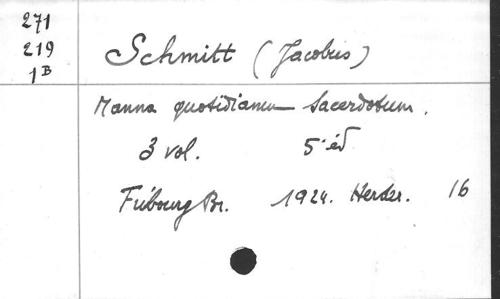 271
219
1B
Schmitt (Jacobus)
Manna quotidianum Sacerdotum.
3 vol. 5e éd
Fribourg Br. 1924. Herder. 16